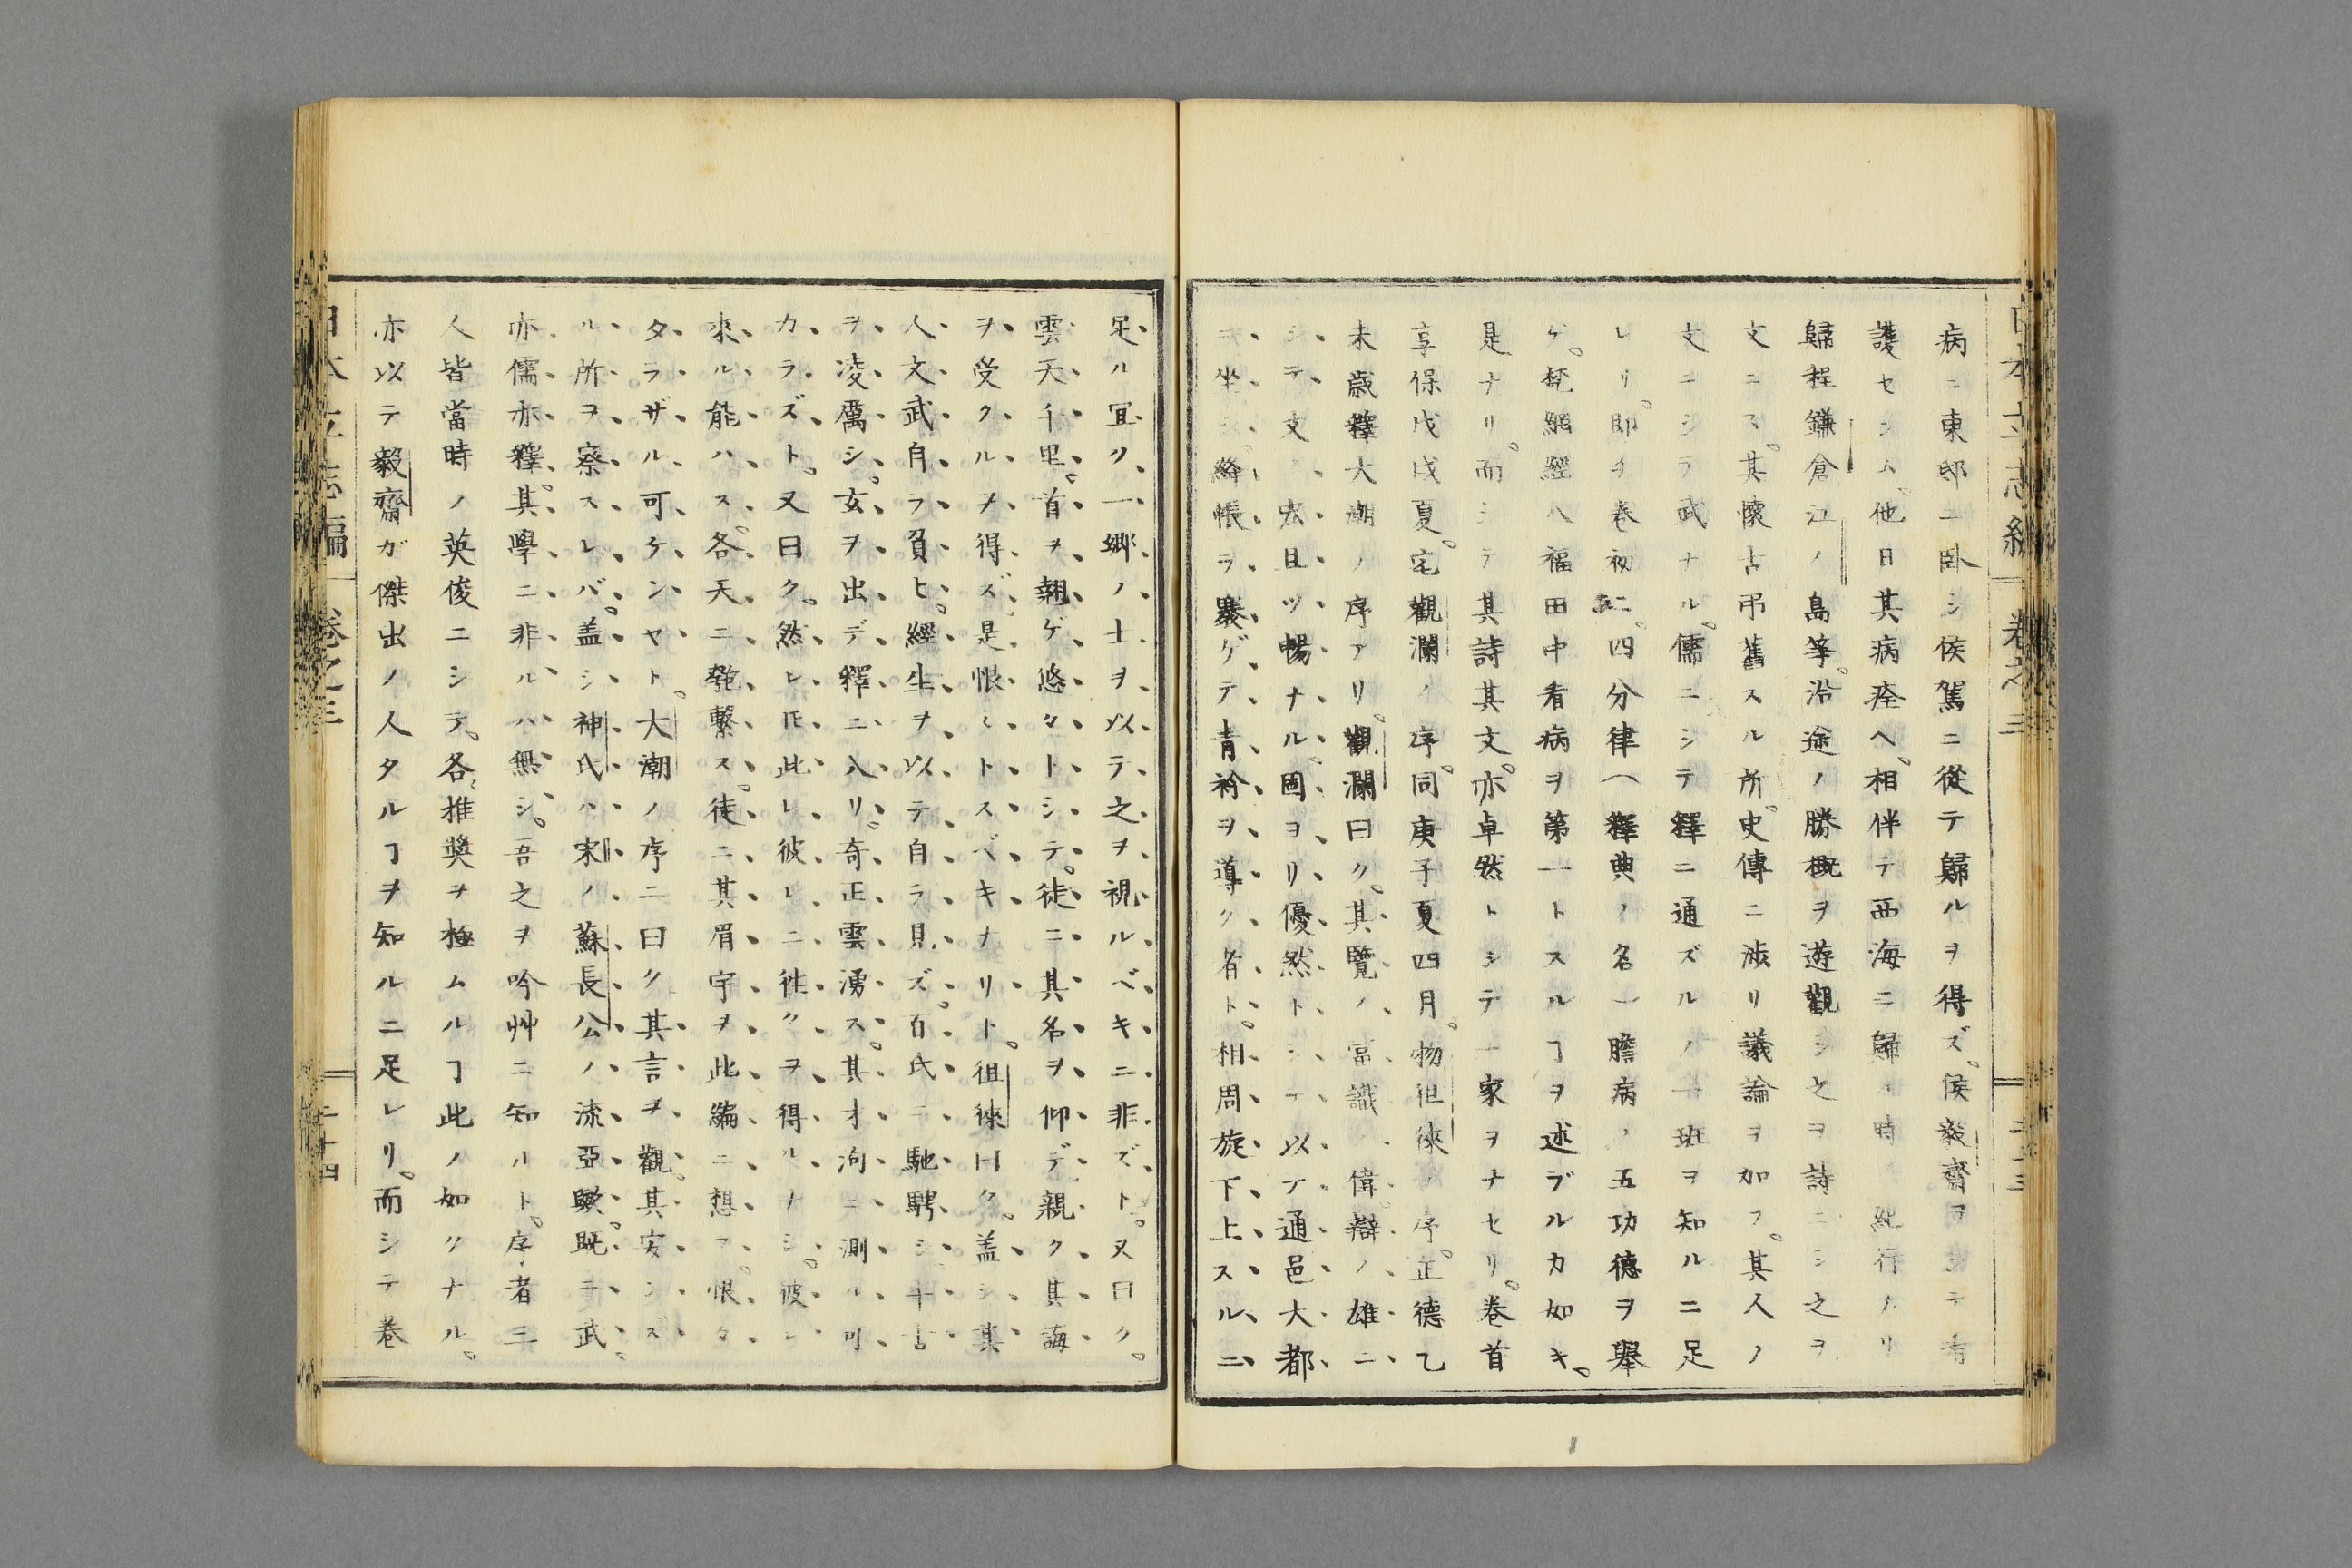 病ニ東邸ニ臥シ侯駕ニ從テ歸ルヲ得ズ。侯毅齋ヲシテ看
護セシム。他日其病痊ヘ。相伴テ西海ニ歸ル時ノ紀行ナリ
歸程鎌倉江ノ島等。沿途ノ勝概ヲ遊觀シ之ヲ詩ニシ之ヲ
文ニス。其懷古弔舊スル所。史傳ニ渉リ議論ヲ加フ。其人ノ
文ニシテ武ナル。儒ニシテ釋ニ通ズルノ一班ヲ知ルニ足
レリ。即チ卷初ニ。四分律(釋典ノ名)膽病ノ五功德ヲ擧
ゲ。梵網經八福田中看病ヲ第一トスルヿヲ述ブルカ如キ。
是ナリ。而シテ其詩其文。亦卓然トシテ一家ヲナセリ。卷首
享保戊戌夏。宅觀瀾ノ序。同庚子夏四月。物徂徠ノ序。正德乙
未歳釋大潮ノ序アリ。觀瀾曰ク。其覽ノ富識ノ偉。辯ノ雄ニ
シテ文ノ宏且ツ暢ナル。固ヨリ優然トシテ以テ通邑大都
ニ坐シ。絳帳ヲ褰ゲテ青衿ヲ導ク者ト。相周旋下上スルニ
足ル宜ク一郷ノ士ヲ以テ之ヲ視ルベキニ非ズト。又曰ク。
雲天千里。首ヲ翹ゲ悠々トシテ。徒ニ其名ヲ仰デ親ク其誨
ヲ受クルヲ得ズ是恨ミトスベキナリト。徂徠曰ク。蓋シ其
人文武自ラ負ヒ。經生ヲ以テ自ラ見ズ。百氏ニ馳騁シ千古
ヲ凌厲シ。玄ヲ出デ釋ニ入リ。奇正雲湧ス。其才洵ニ測ル可
カラズト。又曰ク。然レ𪜈此レ彼レニ徃クヲ得ルナシ。彼レ
來ル能ハス。各天ニ匏繫ス。徒ニ其眉宇ヲ此編ニ想フ。恨々
タラザル可ケンヤト。大潮ノ序ニ曰ク其言ヲ觀。其安ンズ
ル所ヲ察スレバ。盖シ神氏ハ宋ノ蘇長公ノ流亞歟。既ニ武
亦儒亦釋。其學ニ非ルハ無シ。吾之ヲ吟艸ニ知ルト。序者三
人皆當時ノ英俊ニシテ。各推奬ヲ極ムルヿ此ノ如クナル。
亦以テ毅齋ガ傑出ノ人タルヿヲ知ルニ足レリ。而シテ卷
日本立志編 卷之三 二十四